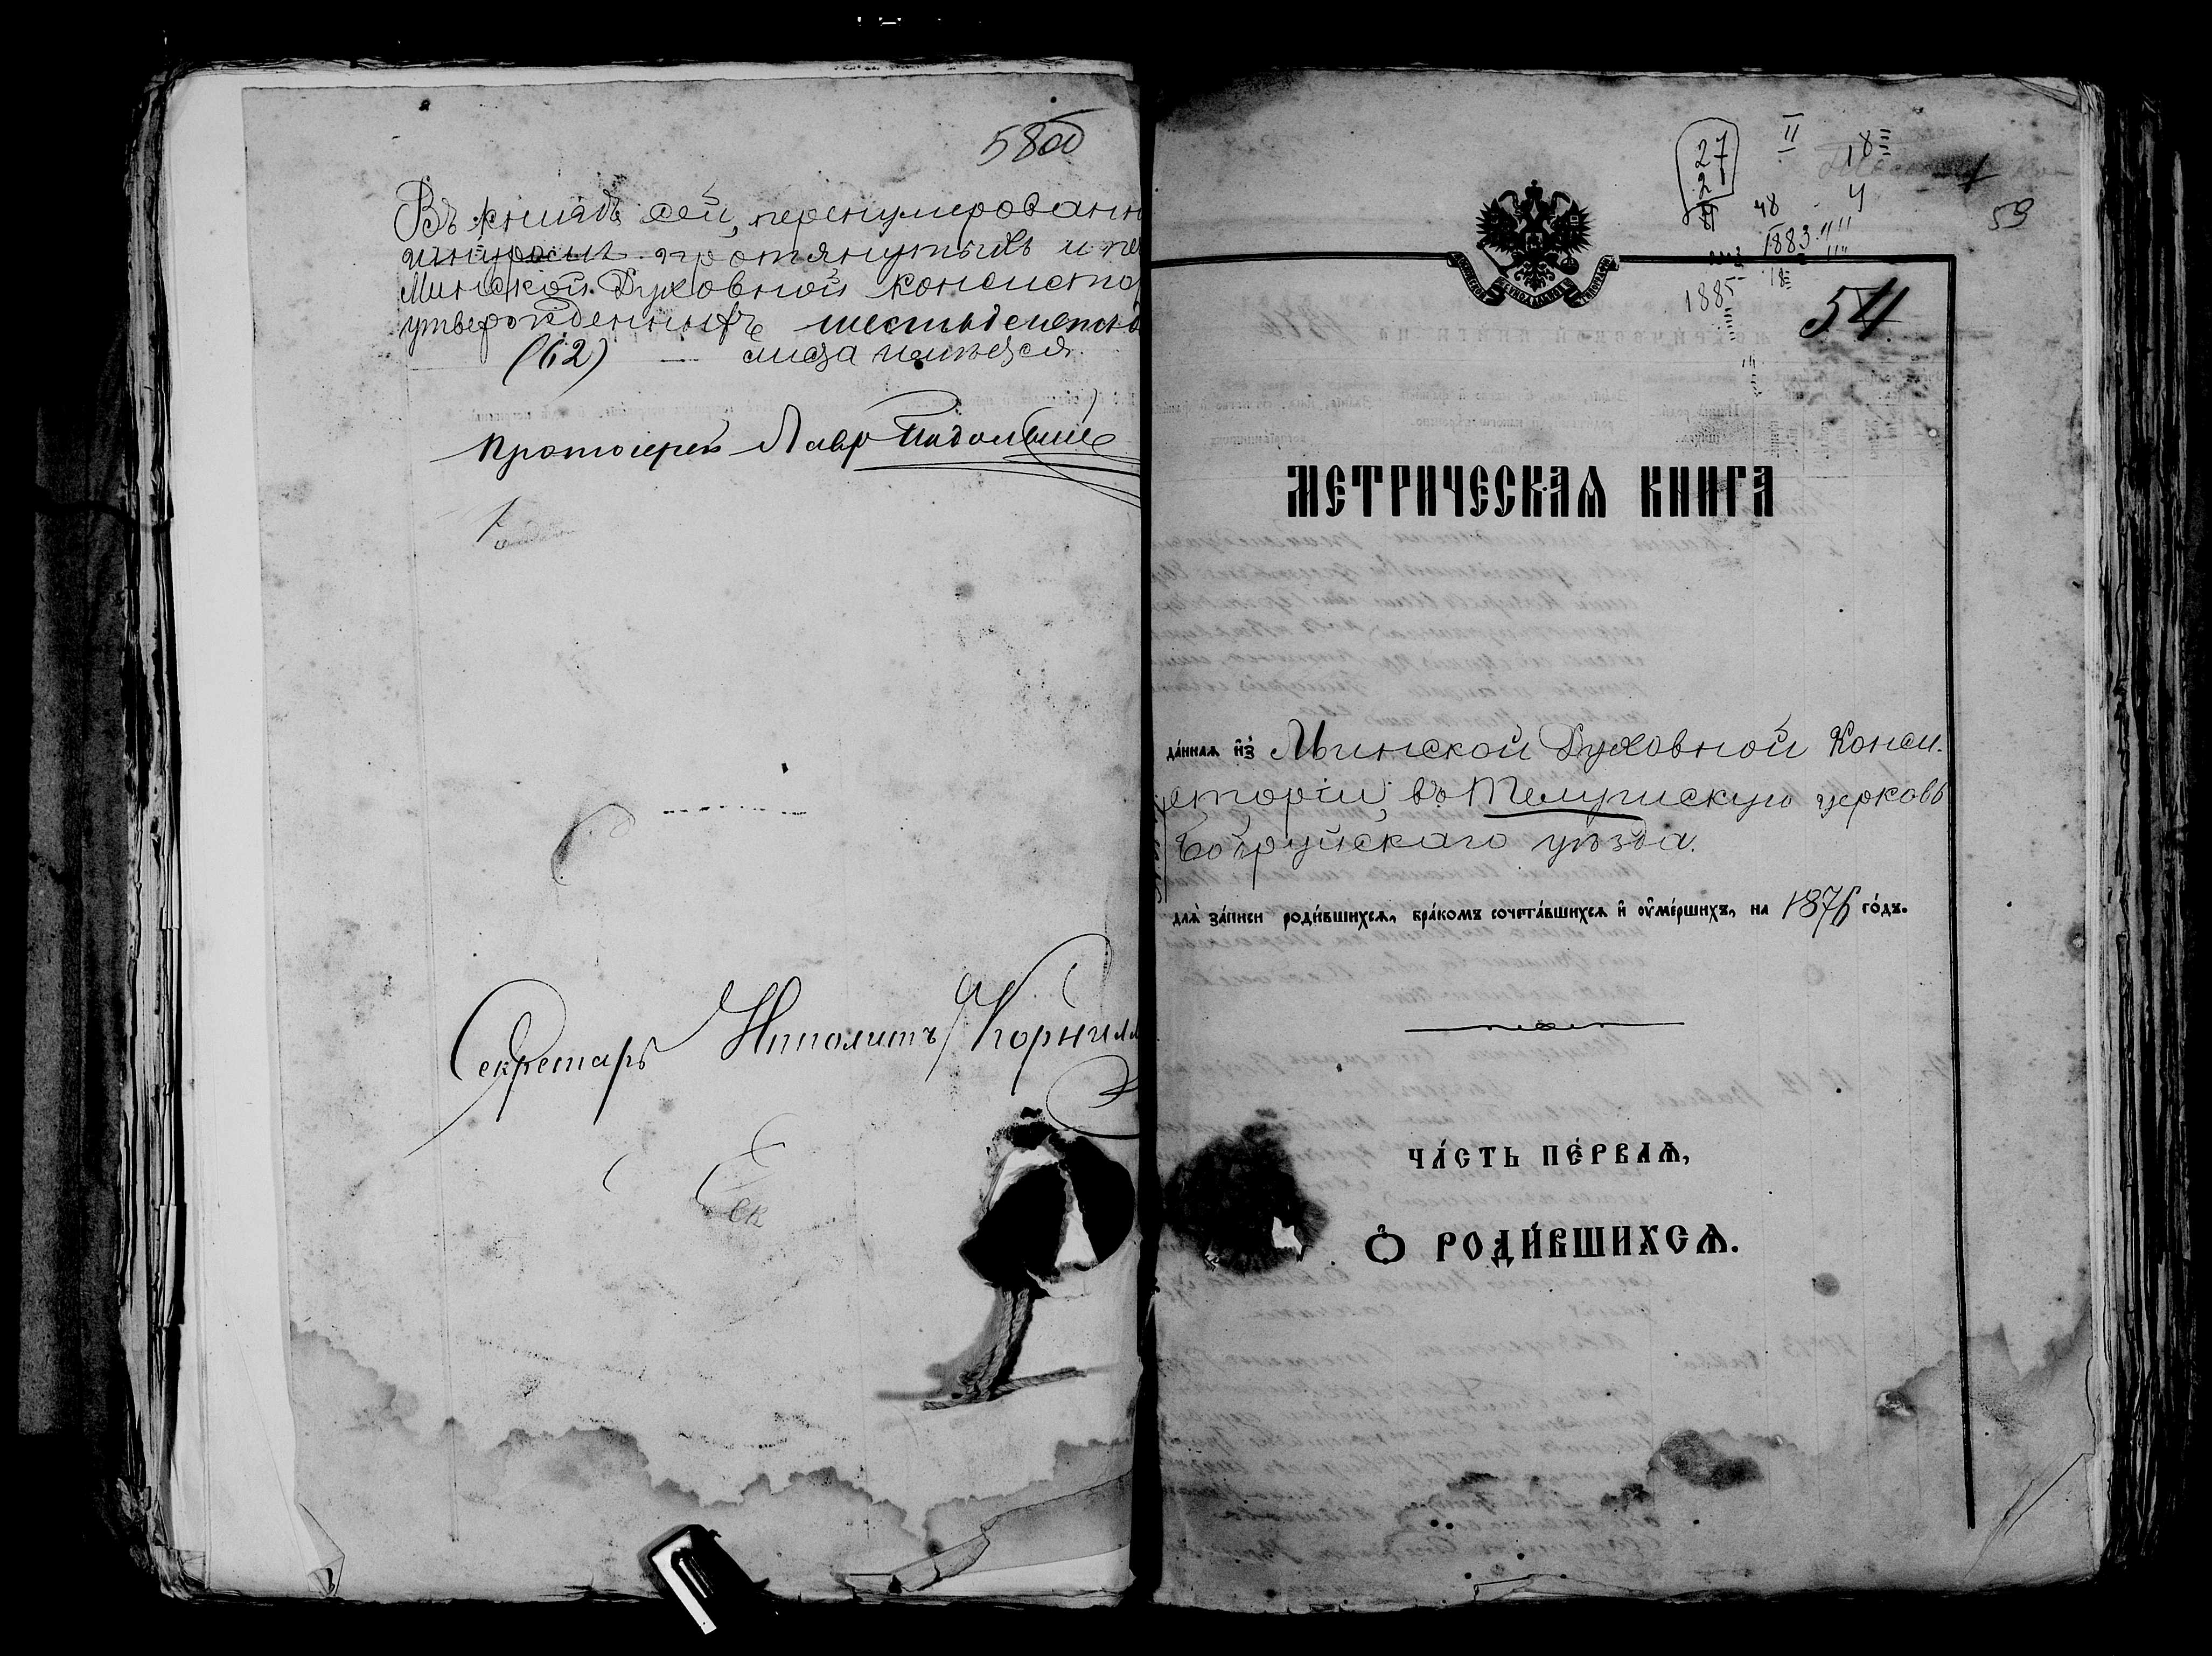 58об
Въ книгѣ сей, перенумерованн
шнуромъ протянутыхъ и пе
Минской Духовной Консисто
утвержденныхъ шестьдесятъ
(62) — листа имѣется.
Протоіерей Лавр
Секретарь Ипполитъ Корнил
Сек
27
2
II
18
48
4
1883
18
1885
59
54
МЕТРИЧЕСКАѦ КНИГА
да́ннаѧ и҆зъ Минской Духовной Конси-
сторіи, въ Телушскую церковь
Бобруйскаго уѣзда.
длѧ̀ за́писи роди́вшихсѧ, бра́комъ сочета́вшихсѧ и҆ ᲂу҆ме́ршихъ, на 1876 го́дъ.
ЧА́СТЬ ПЕ́РВАѦ,
Ѽ РОДИ́ВШИХСѦ.